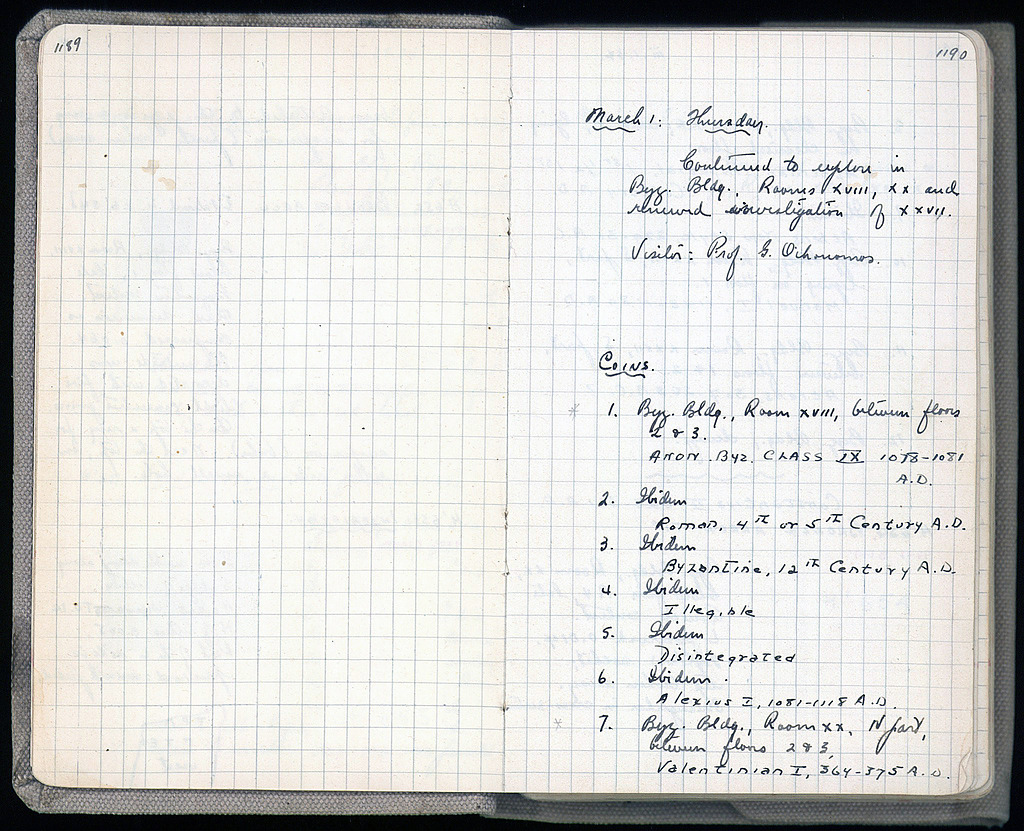 1189
1190
March 1: Thursday.
Continued to explore in
Byz. Bldg., Rooms XVIII, XX and
renewed investigation of XXVII.
Visitor: Prof. G. Oikonomos.
Coins.
* 1. Byz. Bldg., Room XVIII, between floors
2 & 3.
Anon. Byz. CLASS IX 1078-1081
A.D.
2. Ibidem
Roman, 4TH or 5TH Century A.D.
3. Ibidem
Byzantine, 12TH Century A.D.
4. Ibidem
Illegible
5. Ibidem
Disintegrated
6. Ibidem.
Alexius I, 1081-1118 A.D.
* 7. Byz. Bldg., Room XX, N part,
between floors 2 & 3,
Valentinian I, 364-375 A.D.